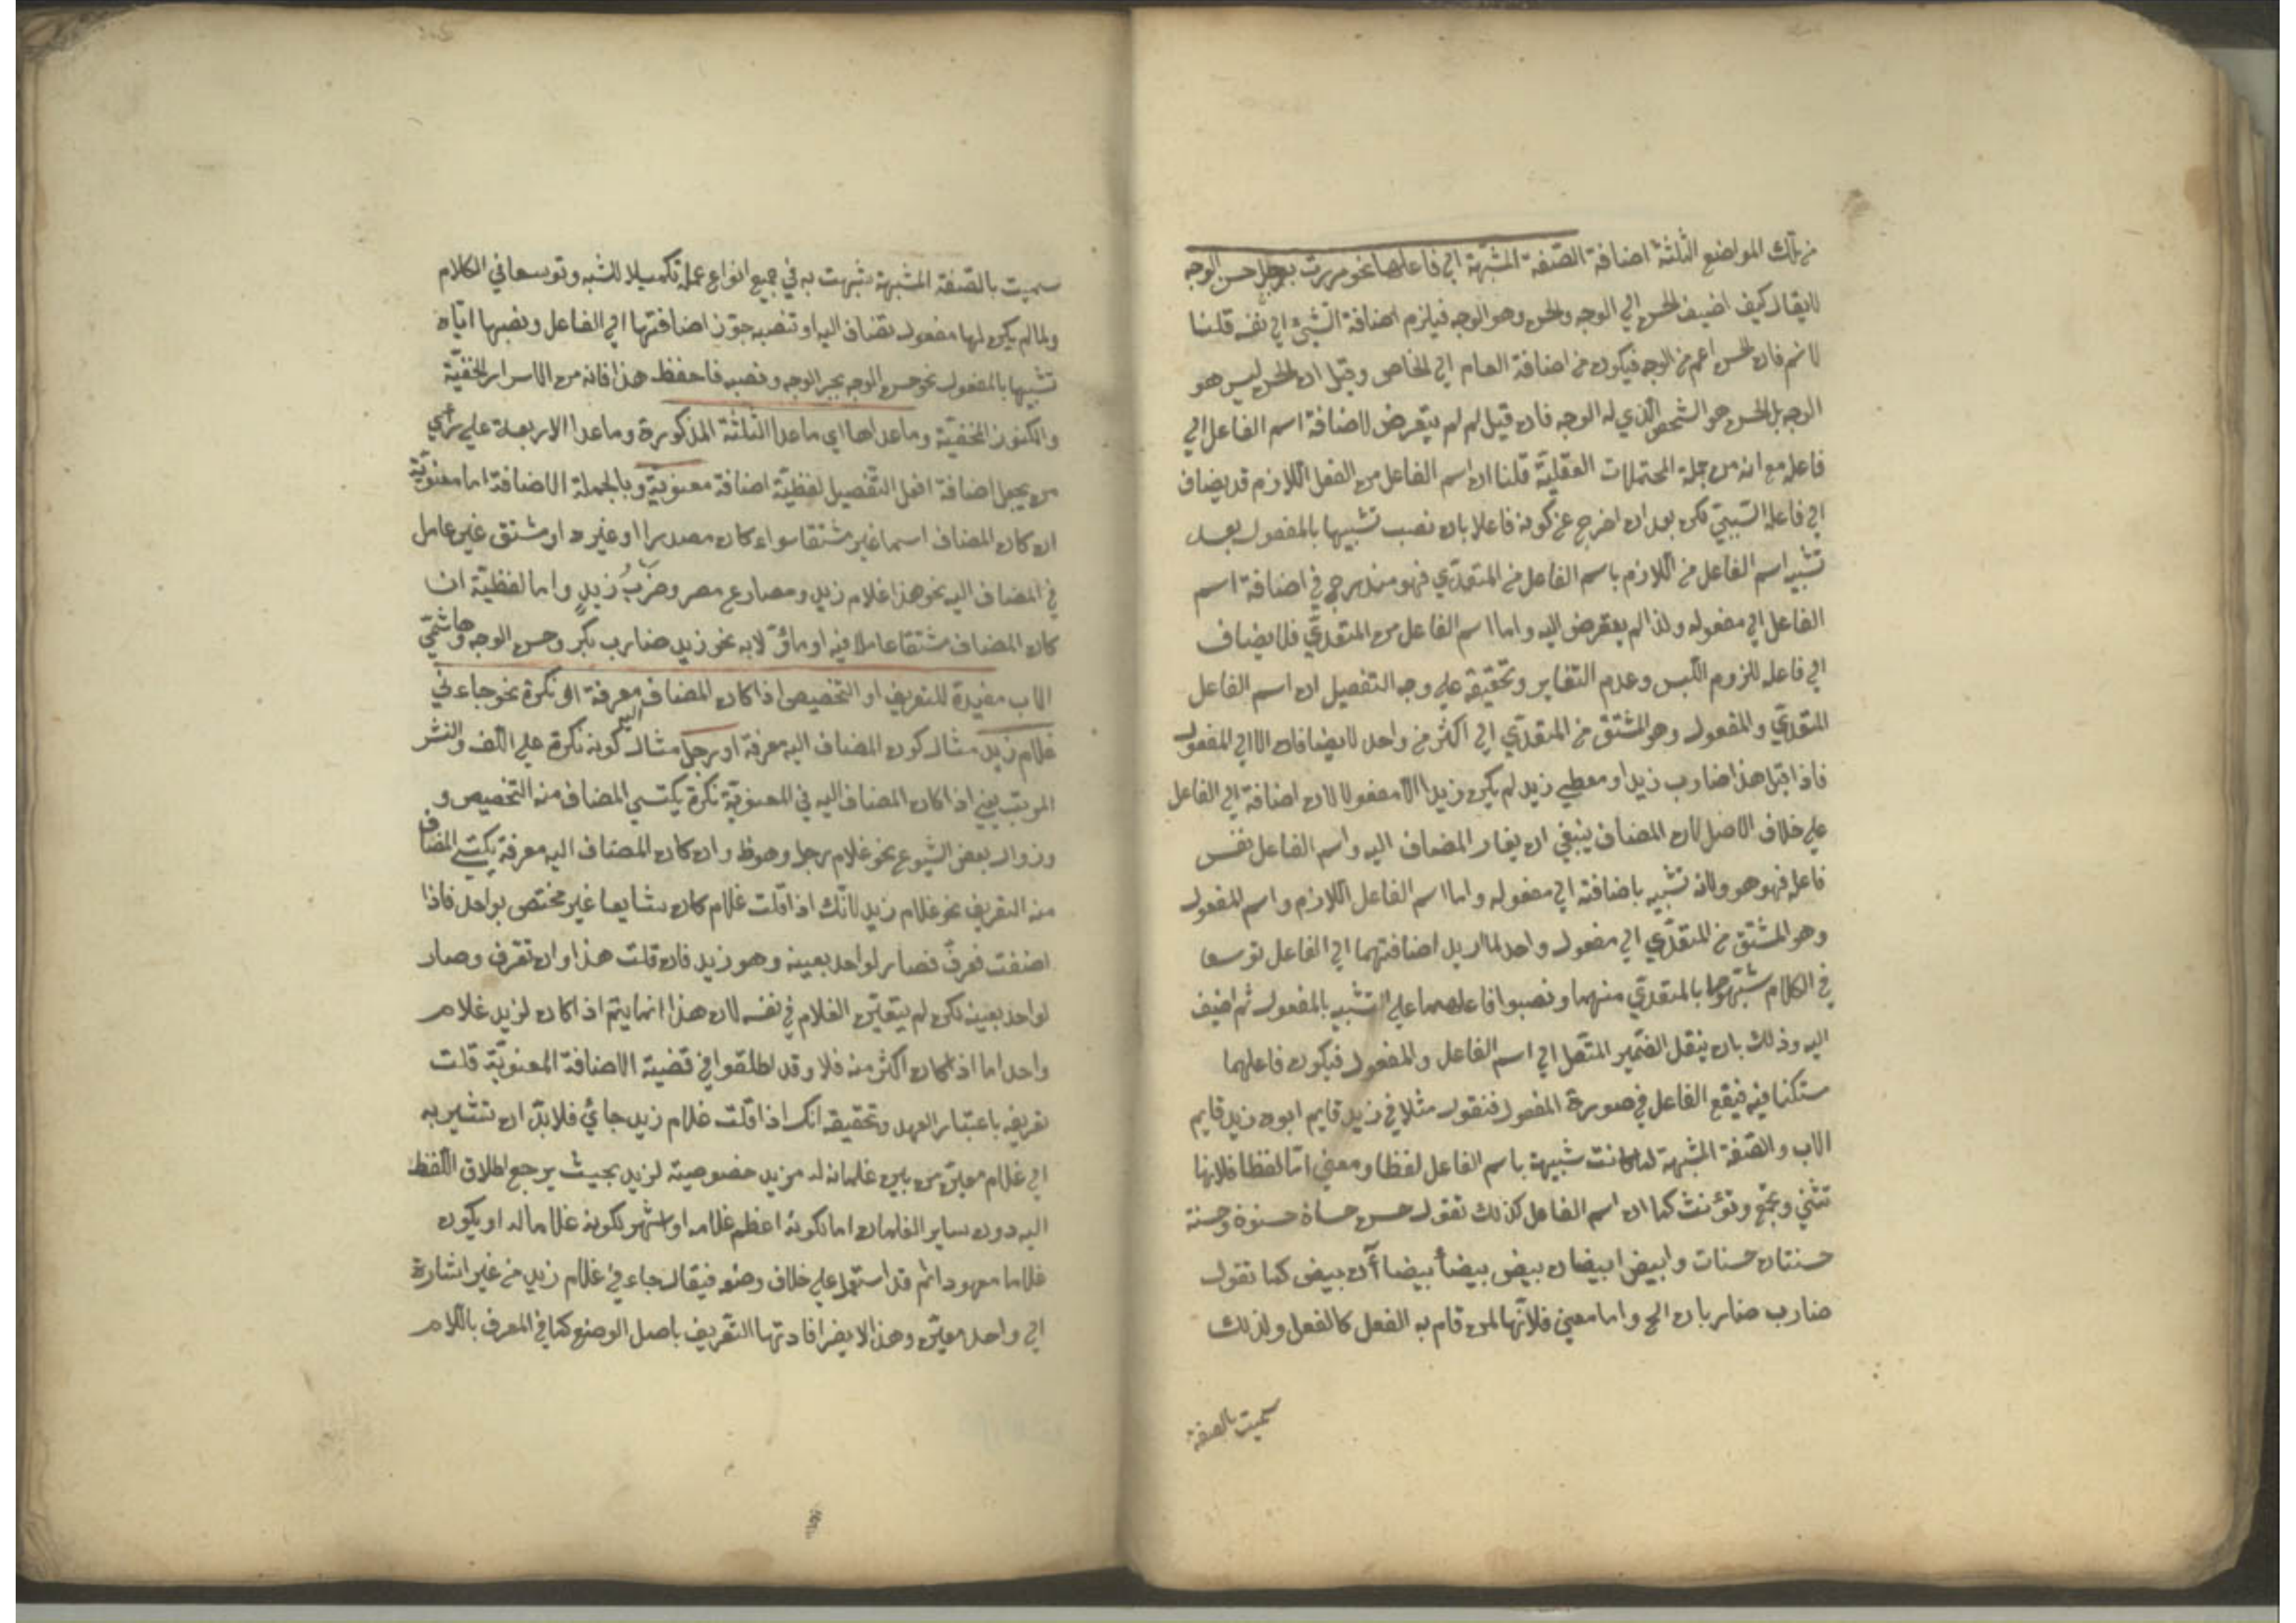 من تلك المواضع الثلثة اضافة الصفة المشبهة الي فاعلها نحو مررت برجل حسن الوجه
لايقال كيف اضيف الحسن الي الوجه والحسن وهو الوجه فيلزم اضافة الشيئ الي نفسه قلنا
لانم فان الحسن اعم من الوجه فيكون من اضافة العام الي الخاص وقيل ان الحسن ليس هو
الوجه بل الحسن هو الشخص الذي له الوجه فان قيل لم لم يتعرض لاضافة اسم الفاعل الي
فاعله مع انه من جملة المحتملات العقلية قلنا ان اسم الفاعل من الفعل اللازم قد يضاف
الي فاعله السببي لكن بعد ان اخرج عن كونه فاعلا بان نصب تشبيها بالمفعول بعد
تشبيه اسم الفاعل من اللازم باسم الفاعل من المتعدي فهو مندرج في اضافة اسم
الفاعل الي مفعوله ولذا لم يتعرض اليه واما اسم الفاعل من المتعدي فلا يضاف
الي فاعله للزوم اللبس وعدم التغاير وتحقيقه علي وجه التفصيل ان اسم الفاعل
المتعدي والمفعول وهو المشتق من المتعدي الي اكثر من واحد لا يضافان الا الي المفعول
فاذا قيل هذا ضارب زيد او معطي زيد لم يكن زيد الا مفعولا لان اضافة الي الفاعل
علي خلاف الاصل لان المضاف ينبغي ان يغاير المضاف اليه واسم الفاعل نفس
فاعله فهو هو ولانه تشبيه باضافته الي مفعوله واما اسم الفاعل اللازم واسم المفعول
وهو المشتق من المتعدي الي مفعول واحد لما اريد اضافتهما الي الفاعل توسعا
في الكلام شبهوهما بالمتعدي منهما ونصبوا فاعلهما علي التشبيه بالمفعول ثم اضيف
اليه وذلك بان ينقل الضمير المتصل الي اسم الفاعل والمفعول فيكون فاعلهما
مستكنا فيه فيقع الفاعل في صورة المفعول فنقول مثلا في زيد قايم ابوه زيد قايم
الاب والصفة المشبهة لما كانت شبيهة باسم الفاعل لفظا ومعني اما لفظا فلانها
تثني وتجمع وتؤنث كما ان اسم الفاعل كذلك تقول حسن حسنة
حسنتان حسنات وابيض ابيضان بيض بيضاء بيضاآن بيض كما تقول
ضارب ضاربان الخ واما معني فلانها لمن قام به الفعل كالفعل ولذلك
سميت بالصفة
سميت بالصفة المشبهة شبهت به في جميع انواع عمله تكميلا للشبه وتوسعا في الكلام
ولما لم يكن لها مفعول تضاف اليه او تنصبه جوزن اضافتها الي الفاعل ونصبها اياه
تشبيها بالمفعول نحو حسن الوجه بجر الوجه ونصبه فاحفظ هذا فانه من الاسرار الخفية
والكنوز المخفية وما عداها اي ما عدا الثلثة المذكورة وما عدا الاربعة علي رأي
من يجعل اضافة افعل التفضيل لفظية اضافة معنوية وبالجملة الاضافة اما معنوية
ان كان المضاف اسما غير مشتق سواء كان مصدرا او غيره او مشتق غير عامل
في المضاف اليه نحو هذا غلام زيد ومصارع مصر وضرب زيد واما لفظية ان
كان المضاف مشتقا عاملا فيه او مأولا به نحو زيد ضارب بكر وحسن الوجه وهاشمي
الاب مفيدة للتعريف او التخصيص اذا كان المضاف اليه معرفة او نكرة نحو جاءني
غلام زيد مثال كون المضاف اليه معرفة او رجل مثال كونه نكرة علي اللف والنشر
المرتب يعني اذا كان المضاف اليه في المعنوية نكرة يكتسي المضاف منه التخصيص و
وزوال بعض الشيوع نحو غلام رجل وهو ظ وان كان المضاف اليه معرفة يكتسي المضاف
منه التعريف نحو غلام زيد لانك اذا قلت غلام كان شايعا غير مختص بواحد فاذا
اضفت تعرف فصار لواحد بعينه وهو زيد فان قلت هذا وان تعرف وصار
لواحد بعينه لكن لم يتعين الغلام في نفسه لان هذا انما يتم اذا كان لزيد غلام
واحد اما اذا كان اكثر منه فلا وقد اطلقوا في قضية الاضافة المعنوية قلت
تعريفه باعتبار العهد وتحقيقه انك اذا قلت غلام زيد جائي فلابد ان تشير به
الي غلام معين من بين غلمانه له مزيد خصوصية لزيد بحيث يرجع اطلاق اللفظ
اليه دون ساير الغلمان اما لكونه اعظم غلامه او اشهر بكونه غلاما له او يكون
غلاما معهودا ثم قد استعمل علي خلاف وضعه فيقال جاءني غلام زيد من غير اشارة
الي واحد معين وهذا لا يضر افادتها التعريف باصل الوضع كما في المعرف باللام